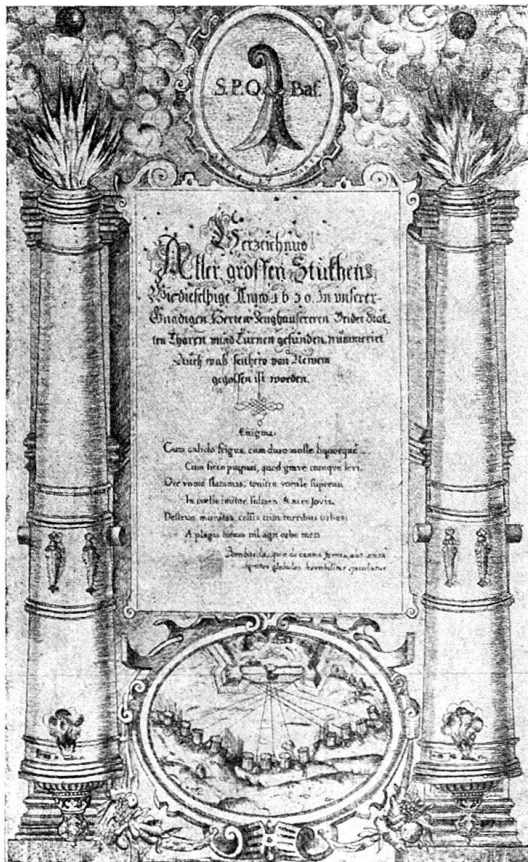 S.P.Q. Bas.
Verzeichnus
Aller grossen Stukhen
Wie dieselbige Anno 1650. In unserer
Gnädigen Herren Zeughauseren In der Stat
ten Thoren unnd Türnen gefunden, nummeriert
Auch waß seithero von Newem
gegossen ist worden.
Enigma.
Cum calido frigus, cum duro molle, liquorque
Cum sicco pugnat, quod grave cumque levi.
Ore vomo flammas, tonitru
In coelis imitor fulmen, &
Destruo munitas, celsis cum turribus urbes:
A plagis nomen
Bombarda,
globulos horribiliter